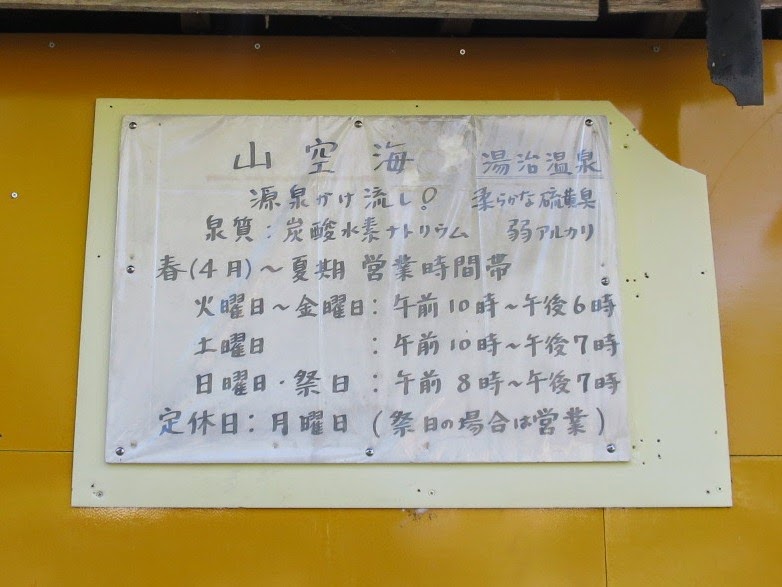 山空海 湯治温泉
源泉かけ流し! 柔らかな硫黄臭
泉質：炭酸水素ナトリウム 弱アルカリ
春(4月)～夏期 営業時間帯
火曜日～金曜日：午前10時～午後6時
土曜日：午前10時～午後7時
日曜日・祭日：午前8時～午後7時
定休日：月曜日(祭日の場合は営業)